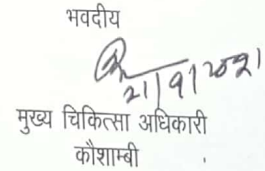 भवदीय
21/9/2021
मुख्य चिकित्सा अधिकारी
कौशाम्बी